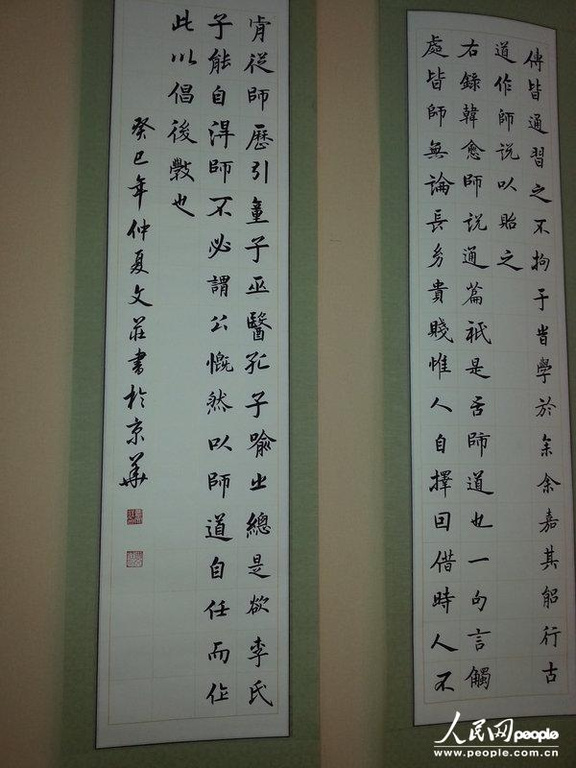 傳皆通習之不拘于旹學於余余嘉其能行古
道作師说以貽之
右錄韓愈師说通篇祇是吾師道也一句言觸
處皆師無論長幼貴賤惟人自擇回借時人不
肯從師歷引童子巫醫孔子喻之總是欲李氏
子能自淂師不必謂公慨然以師道自任而作
此以倡後斅也
癸巳年仲夏文莊書於京華
人民网people
www.people.com.cn